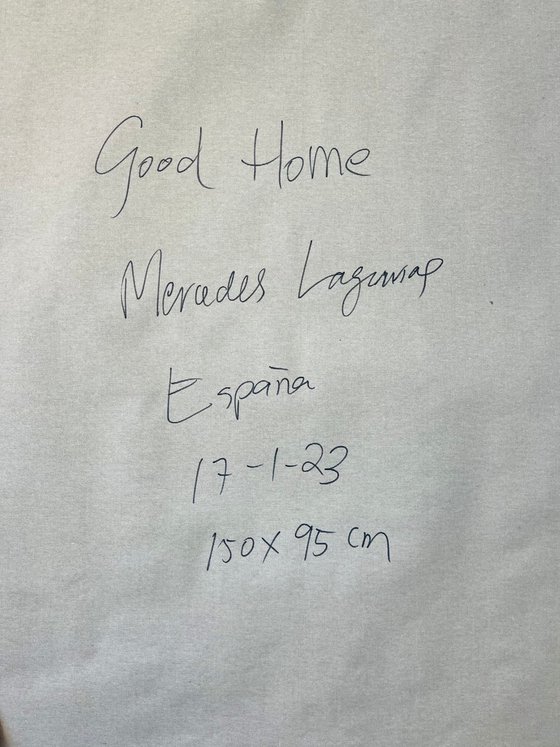 Good Home
Mercedes Lagunas
España
17-1-23
150 x 95 cm